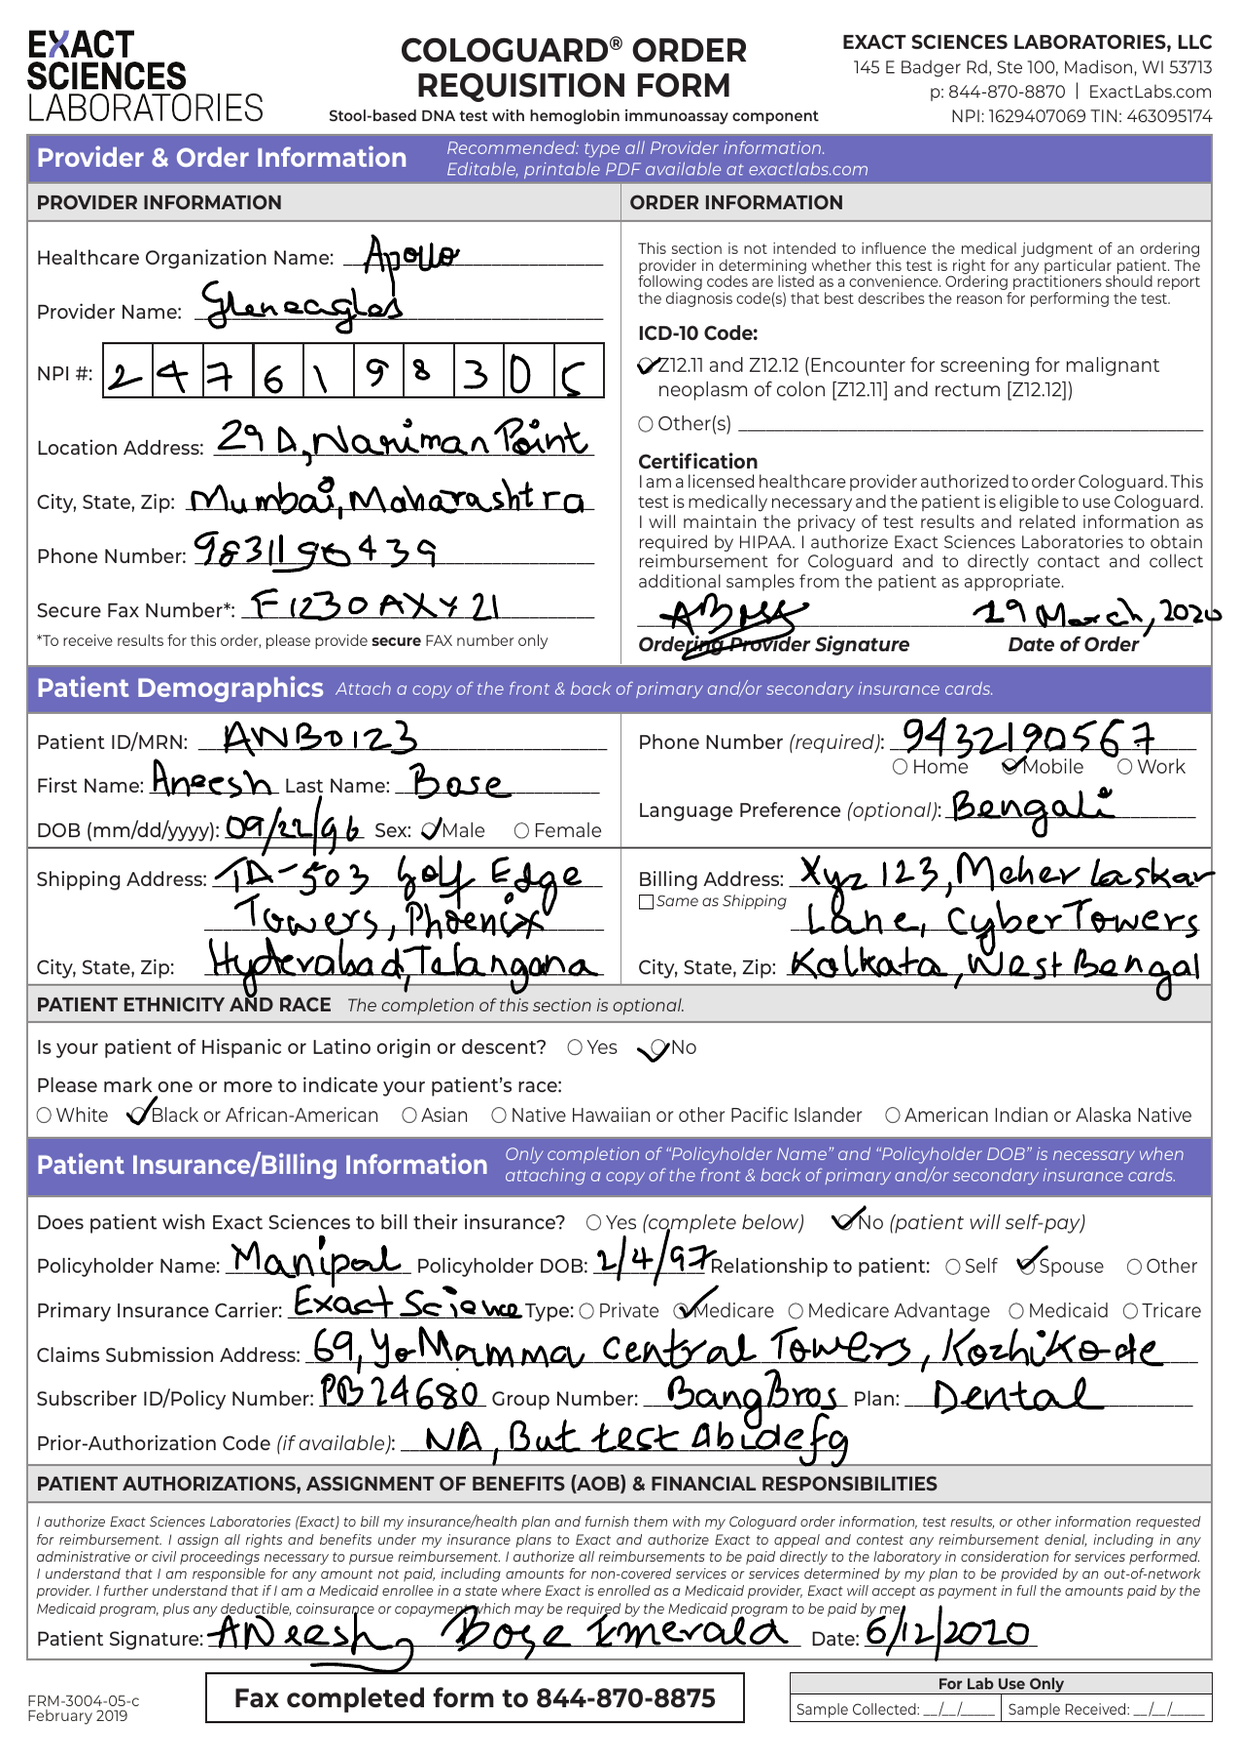 EXACT
SCIENCES
LABORATORIES
COLOGUARD® ORDER
REQUISITION FORM
Stool-based DNA test with hemoglobin immunoassay component
EXACT SCIENCES LABORATORIES, LLC
145 E Badger Rd, Ste 100, Madison, WI 53713
p: 844-870-8870 | ExactLabs.com
NPI: 1629407069 TIN: 463095174
Provider & Order Information
Recommended: type all Provider information.
Editable, printable PDF available at exactlabs.com
PROVIDER INFORMATION
Healthcare Organization Name: Apollo
Provider Name: Gleneagles
NPI #: 2 4 7 6 1 9 8 3 0 5
Location Address: 29 A, Nariman Point
City, State, Zip: Mumbai, Maharashtra
Phone Number: 9831196439
Secure Fax Number*: F1230AXY21
*To receive results for this order, please provide secure FAX number only
ORDER INFORMATION
This section is not intended to influence the medical judgment of an ordering
provider in determining whether this test is right for any particular patient. The
following codes are listed as a convenience. Ordering practitioners should report
the diagnosis code(s) that best describes the reason for performing the test.
ICD-10 Code:
Z12.11 and Z12.12 (Encounter for screening for malignant
neoplasm of colon [Z12.11] and rectum [Z12.12])
Other(s)
Certification
I am a licensed healthcare provider authorized to order Cologuard. This
test is medically necessary and the patient is eligible to use Cologuard.
I will maintain the privacy of test results and related information as
required by HIPAA. I authorize Exact Sciences Laboratories to obtain
reimbursement for Cologuard and to directly contact and collect
additional samples from the patient as appropriate.
29 March, 2020
Ordering Provider Signature Date of Order
Patient Demographics Attach a copy of the front & back of primary and/or secondary insurance cards.
Patient ID/MRN: ANB0123
First Name: Aneesh Last Name: Bose
DOB (mm/dd/yyyy): 09/22/96 Sex: Male Female
Phone Number (required): 9432190567
Home Mobile Work
Language Preference (optional): Bengali
Shipping Address: TA-503 Golf Edge
Towers, Phoenix
City, State, Zip: Hyderabad, Telangana
Billing Address: Xyz 123, Meher Laskar
Same as Shipping
Lane, Cyber Towers
City, State, Zip: Kolkata, West Bengal
PATIENT ETHNICITY AND RACE The completion of this section is optional.
Is your patient of Hispanic or Latino origin or descent? Yes No
Please mark one or more to indicate your patient's race:
White Black or African-American Asian Native Hawaiian or other Pacific Islander American Indian or Alaska Native
Patient Insurance/Billing Information
Only completion of "Policyholder Name" and "Policyholder DOB" is necessary when
attaching a copy of the front & back of primary and/or secondary insurance cards.
Does patient wish Exact Sciences to bill their insurance? Yes (complete below) No (patient will self-pay)
Policyholder Name: Manipal Policyholder DOB: 2/4/97 Relationship to patient: Self Spouse Other
Primary Insurance Carrier: Exact Science Type: Private Medicare Medicare Advantage Medicaid Tricare
Claims Submission Address: 69, Yo Mamma Central Towers, Kozhikode
Subscriber ID/Policy Number: PB24680 Group Number: BangBros Plan: Dental
Prior-Authorization Code (if available): NA, But test Abidefg
PATIENT AUTHORIZATIONS, ASSIGNMENT OF BENEFITS (AOB) & FINANCIAL RESPONSIBILITIES
I authorize Exact Sciences Laboratories (Exact) to bill my insurance/health plan and furnish them with my Cologuard order information, test results, or other information requested
for reimbursement. I assign all rights and benefits under my insurance plans to Exact and authorize Exact to appeal and contest any reimbursement denial, including in any
administrative or civil proceedings necessary to pursue reimbursement. I authorize all reimbursements to be paid directly to the laboratory in consideration for services performed.
I understand that I am responsible for any amount not paid, including amounts for non-covered services or services determined by my plan to be provided by an out-of-network
provider. I further understand that if I am a Medicaid enrollee in a state where Exact is enrolled as a Medicaid provider, Exact will accept as payment in full the amounts paid by the
Medicaid program, plus any deductible, coinsurance or copayment which may be required by the Medicaid program to be paid by me.
Patient Signature: ANeesh Bose Emerald Date: 6/12/2020
FRM-3004-05-c
February 2019
Fax completed form to 844-870-8875
For Lab Use Only
Sample Collected: __/__/____ Sample Received: __/__/____